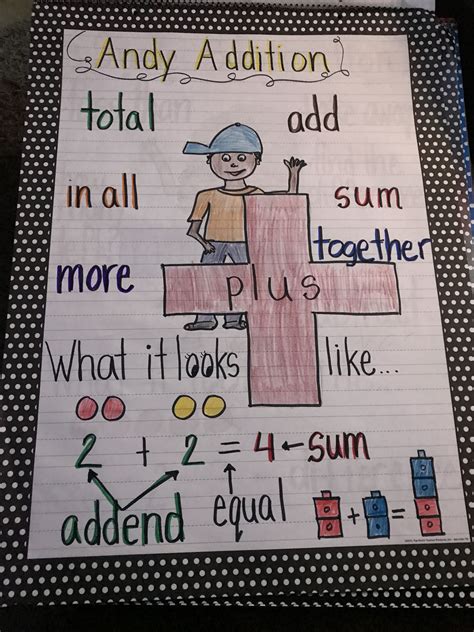 Andy Addition
total add
in all sum
together
more plus
What it looks like...
2 + 2 = 4 ← sum
addend equal
+ =